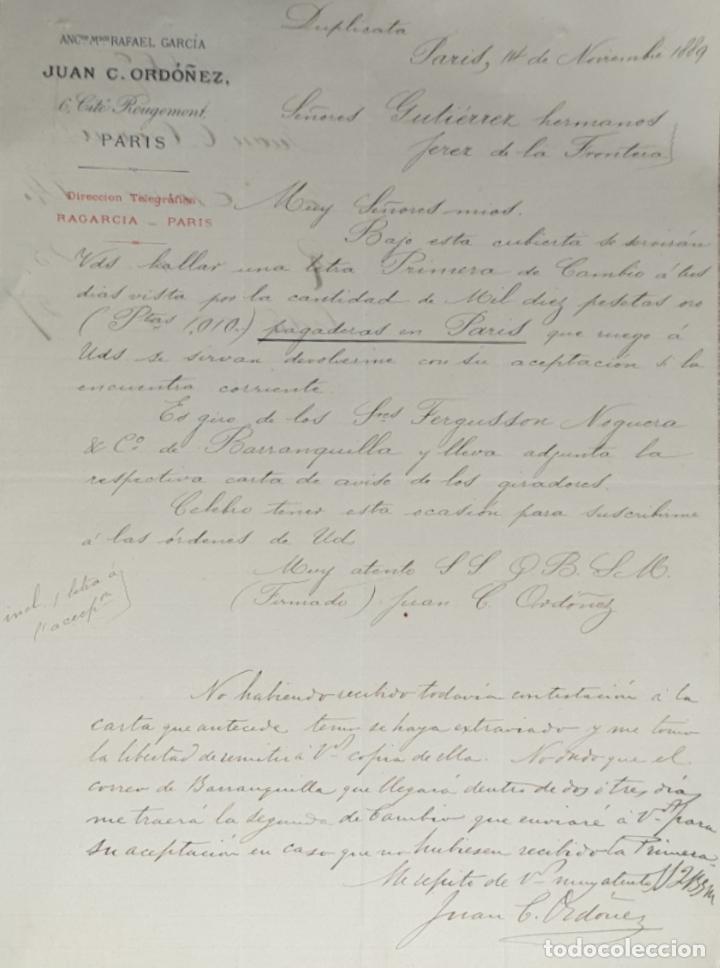 Duplicata
ANCne Mson RAFAEL GARCÍA
JUAN C. ORDÓÑEZ,
6, Cité Rougemont,
PARIS
Direccion Telegráfica
RAGARCIA _ PARIS
Paris, 14 de Noviembre 1889
Señores Gutiérrez hermanos
Jerez de la Frontera
Muy Señores mios.
Bajo esta cubierta se servirán
Vds hallar una letra Primera de Cambio á
dias vista por la cantidad de Mil diez pesetas oro
(Ptas 1,010.) pagaderas en Paris que ruego á
Uds se sirvan devolverme con su aceptacion si la
encuentra corriente.
Es giro de los Sres Fergusson Noguera
& Co. de Barranquilla y lleva adjunta la
respectiva carta de aviso de los giradores.
Celebro tener esta ocasión para suscribirme
á las órdenes de Ud
Muy atento S S Q B S M.
(Firmado) Juan C. Ordóñez
incl. 1 letra á
la acepn
No habiendo recibido todavía contestación á la
carta que antecede temo se haya extraviado y me tomo
la libertad de remitir á Vs copia de ella. No dudo que el
correo de Barranquilla que llegará dentro de dos ó tres días
me traerá la segunda de Cambio que enviaré á Vs para
su aceptación en caso que no hubiesen recibido la Primera.
Me repito de Vs muy atento SS Q B S M
Juan C. Ordóñez
todocoleccion